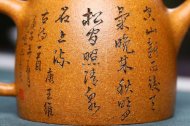 空山新雨後天
氣晚來秋明月
松間照清泉
石上流
唐王維